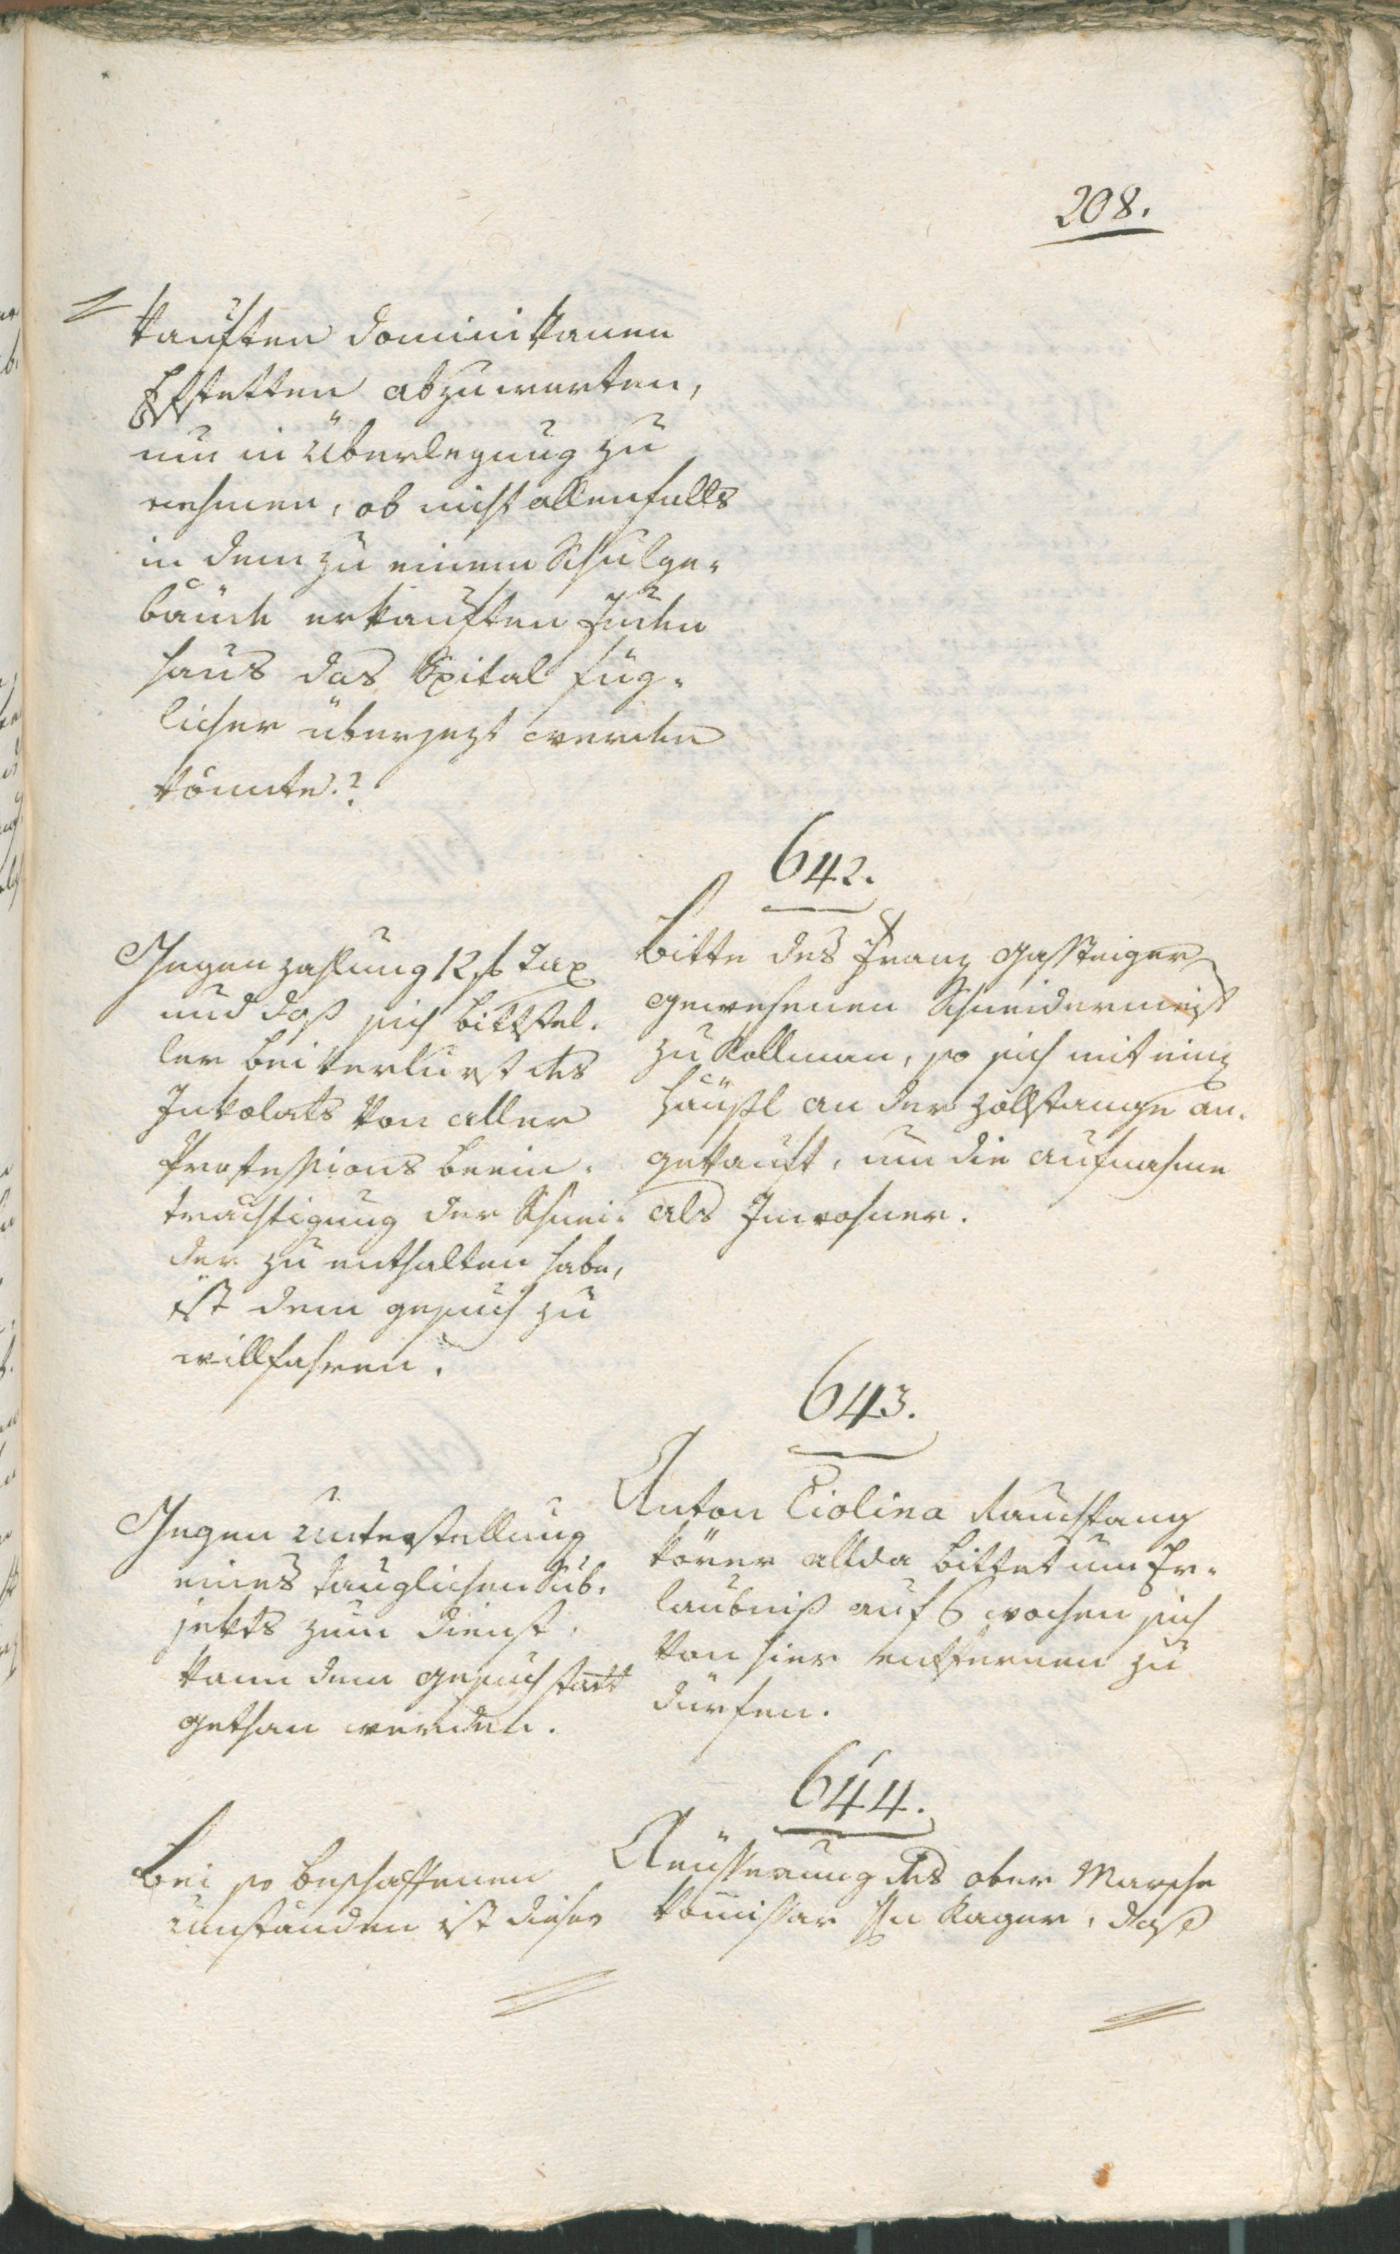 208.
kauften Dominikanen
Effekten abzuwarten,
um in Überlegung zu
nehmen, ob nicht allenfalls
in dem zu einem Schulge-
bäude erkauften Juden
haus das Spital füg-
licher übersezt werden
könnte?
642.
Gegen zahlung 12 f Tax
und daß sich bittstel-
ler bei verlurst des
Inkolats von aller
Professions beein-
trächtigung der Schnei-
der zu enthalten habe,
ist dem gesuch zu
willfahren.
Bitte des Franz Gasteiger
gewesenen Schneidermeist
zu Kollman, so sich mit einem
häußl an der Zollstange an-
gekauft, um die aufnahme
als Inwohner.
643.
Gegen unterstellung
eines tauglichen Sub-
jekts zum dienst,
kann dem gesuch statt
gethan werden.
Anton Ciolina Rauchfang
körer allda bittet um Er-
laubniß auf 6 wochen sich
von hier entfernen zu
dürfen.
644.
Bei so beschaffenen
umständen ist dieser
Aeüsserung des ober Marsche
kommissar Hn Kager, daß